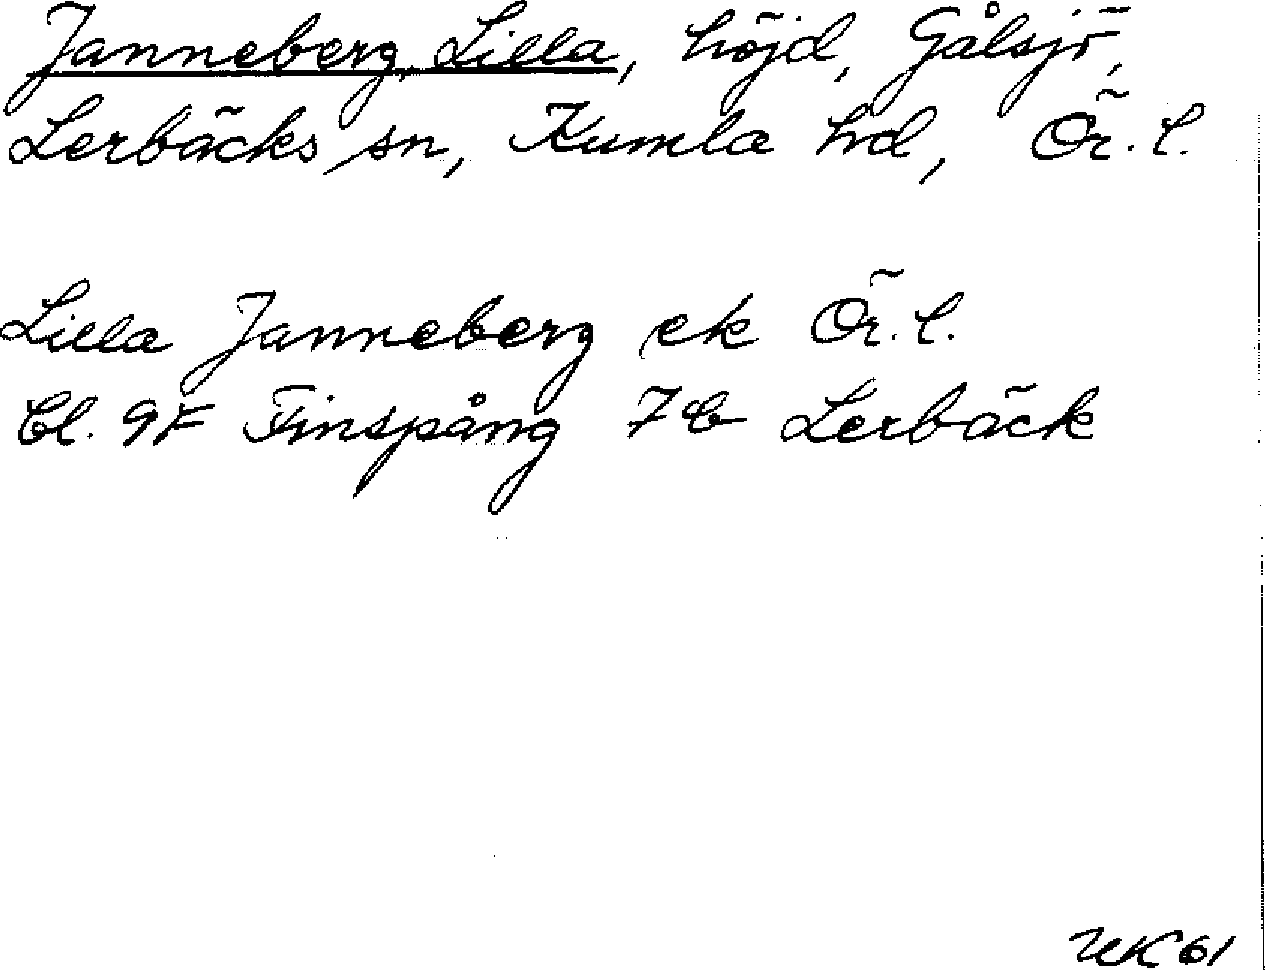 Janneberg, Lilla, höjd, Gålsjö,
Lerbäcks sn, Kumla hd, Ör. l.
Lilla Janneberg ek Ör. l.
Bl. 9F Finspång 7b Lerbäck
UK 61